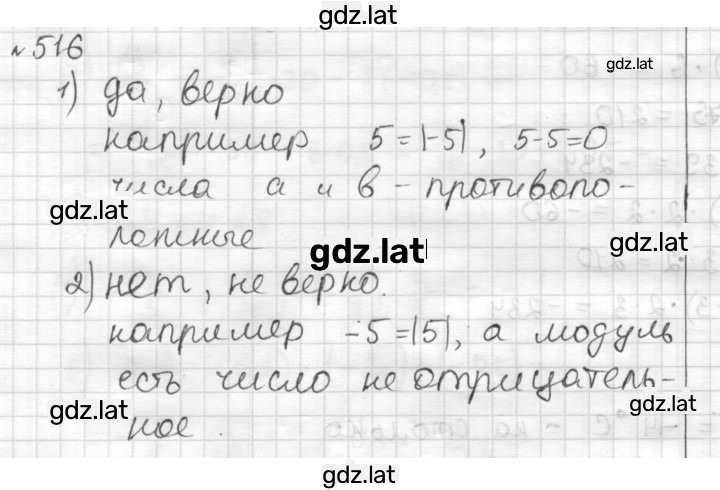 gdz.lat
№516
gdz.lat
1) да, верно
например 5=|-5|, 5-5=0
числа а и в - противопо-
gdz.lat
ложные
gdz.lat
gdz.lat
2) нет, не верно.
например -5=|5|, а модуль
есть число не отрицатель-
gdz.lat
gdz.lat
ное.
gdz.lat